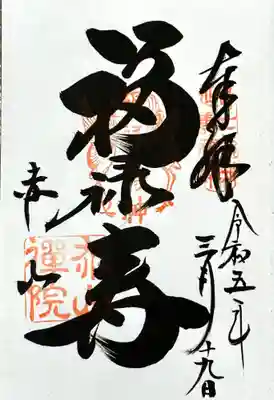 奉拝
令和五年
三月十九日
福禄寿
赤山
赤山
禅院